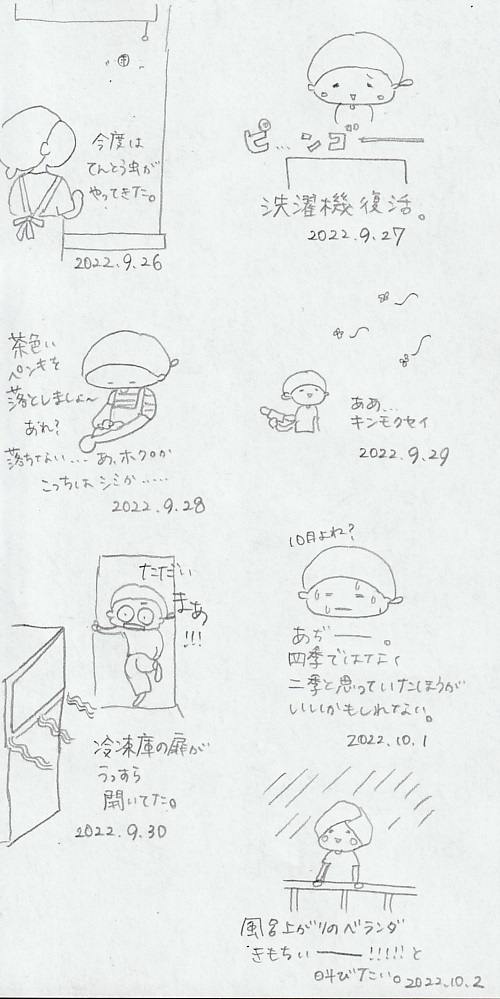 今度は
てんとう虫が
やってきた。
2022.9.26
ピ…ンゴ゛――
洗濯機復活。
2022.9.27
茶色い
ペンキを
落としましょ〜
あれ?
落ちない…. あ、ホクロか
こっちは シミか……
2022.9.28
ああ…
キンモクセイ
2022.9.29
ただい
まあ
!!!
冷凍庫の扉が
うっすら
開いてた。
2022.9.30
10月よね?
あぢ――。
四季ではなく
二季と思っていたほうが
いいかもしれない。
2022.10.1
風呂上がりのベランダ
きもちい――!!!!!と
叫びたい。2022.10.2